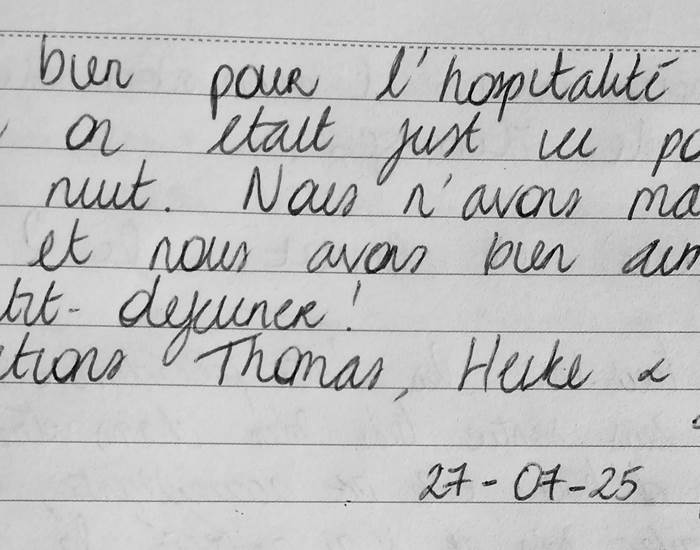 bien pour l'hospitalité
on etait just ici po
nuit. Nous n'avons ma
et nous avons bien aim
tit-dejeuner!
tions Thomas, Heike &
27-07-25